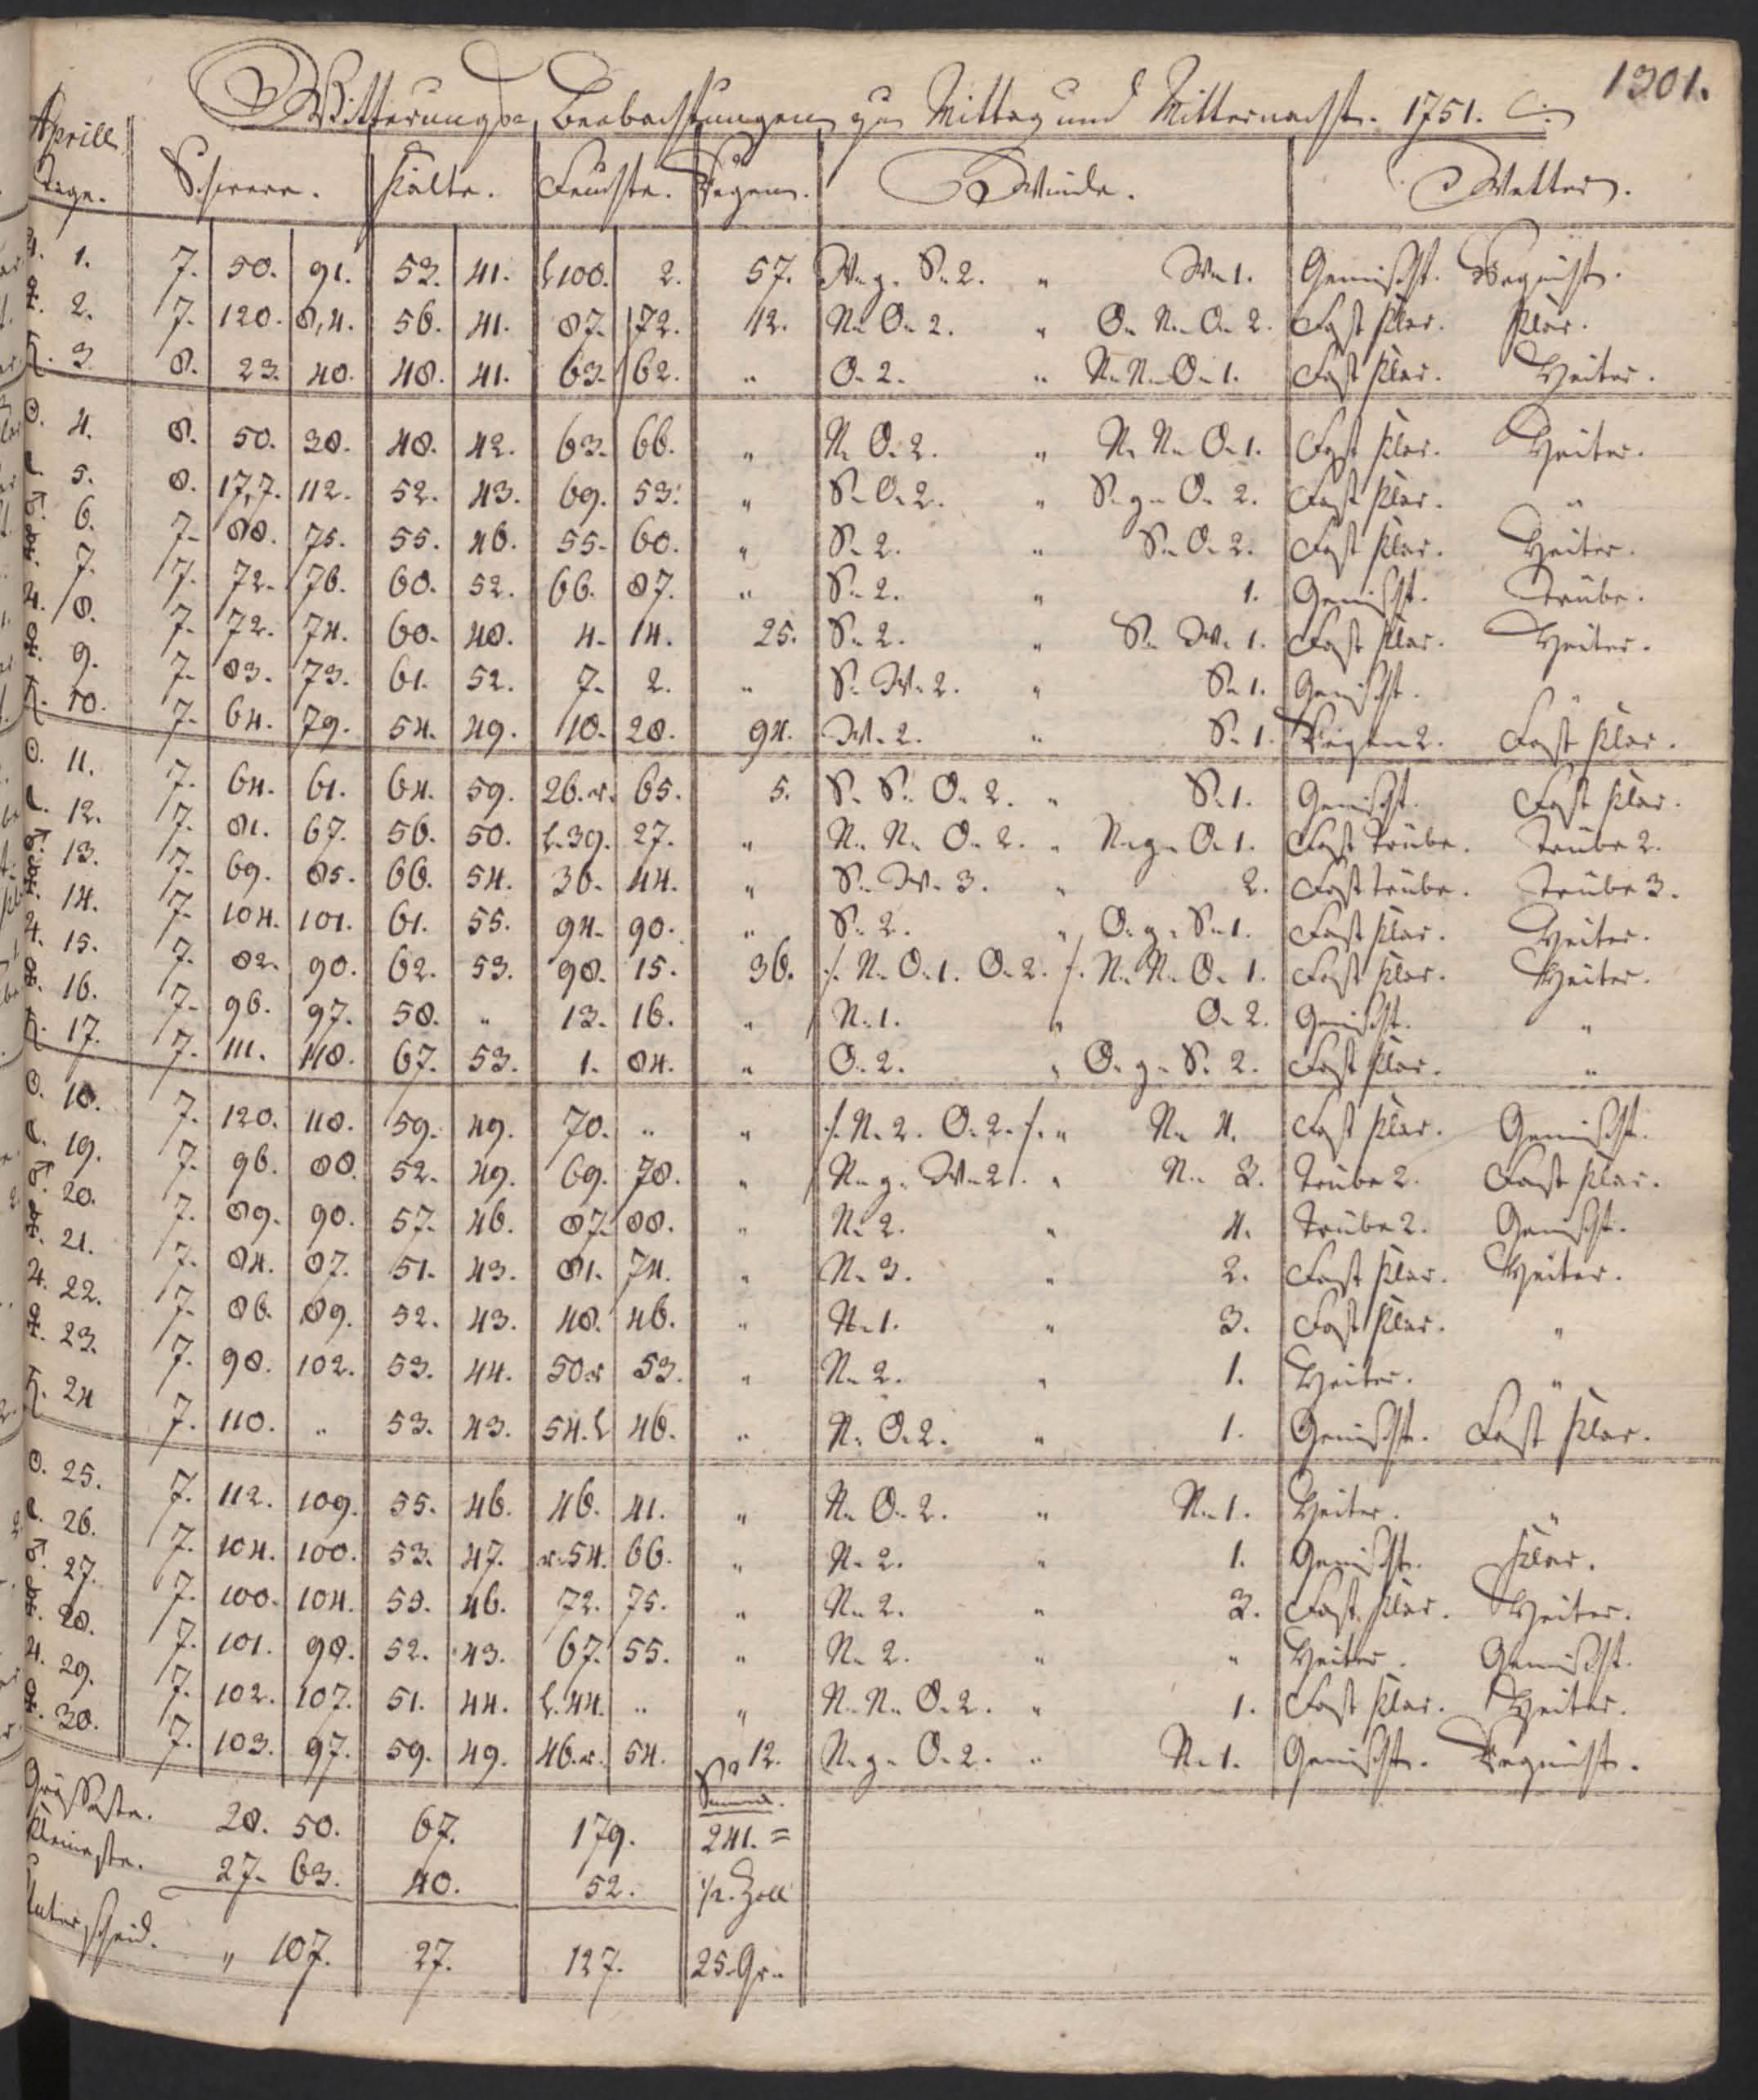 1301.
Witterungs- Beobachtungen zu Mittag und Mitternacht. 1751.
Aprill
Tage. Schwere. Kälte. Feuchte. Regen. Winde. Wetter.
♃. 1. 7. 50. 91. 53. 41. l 100. 2. 57. W. g. S. 2. " W. 1. Gemischt. Regnicht.
♀. 2. 7. 120. 8,4. 56. 41. 87. 172. 12. N. O. 2. " O. N. O. 2. Fast klar. Klar.
♄. 3. 8. 23. 40. 48. 41. 63. 62. " O. 2. " N. N. O. 1. Fast klar. Heiter.
☉. 4. 8. 50. 38. 48. 42. 63. 66. " N. O. 2. " N. N. O. 1. Fast klar. Heiter.
☾. 5. 8. 17,7. 112. 52. 43. 69. 53. " S. O. 2. " S. g. O. 2. Fast klar. "
♂. 6. 7. 88. 75. 55. 46. 55. 60. " S. 2. " S. O. 2. Fast klar. Heiter.
☿. 7. 7. 72. 76. 60. 52. 66. 87. " S. 2. " 1. Gemischt. Trübe.
♃. 8. 7. 72. 74. 60. 48. 4. 14. 25. S. 2. " S. W. 1. Fast klar. Heiter.
♀. 9. 7. 83. 73. 61. 52. 7. 2. " S. W. 2. " S. 1. Gemischt. "
♄. 10. 7. 64. 79. 54. 49. 10. 28. 94. W. 2. " S. 1. Regen 2. Fast klar.
☉. 11. 7. 64. 61. 64. 59. 26. r. 65. 5. S. S. O. 2. " S. 1. Gemischt. Fast klar.
☾. 12. 7. 81. 67. 56. 50. l. 39. 27. " N. N. O. 2. " N. g. O. 1. Fast trübe. Trübe 2.
♂. 13. 7. 69. 85. 66. 54. 36. 44. " S. W. 3. " 2. Fast trübe. Trübe 3.
☿. 14. 7. 104. 101. 61. 55. 94. 90. " S. 2. " O. g. S. 1. Fast klar. Heiter.
♃. 15. 7. 82. 90. 62. 53. 98. 15. 36. /. N. O. 1. O. 2. /. N. N. O. 1. Fast klar. Heiter.
♀. 16. 7. 96. 97. 58. " 13. 16. " N. 1. " O. 2. Gemischt. "
♄. 17. 7. 111. 118. 67. 53. 1. 84. " O. 2. " O. g. S. 2. Fast klar. "
☉. 18. 7. 120. 118. 59. 49. 70. " " /. N. 2. O. 2. /. " N. 4. Fast klar. Gemischt.
☾. 19. 7. 96. 88. 52. 49. 69. 78. " N. g. W. 2. " N. 3. Trübe 2. Fast klar.
♂. 20. 7. 89. 90. 57. 46. 87. 88. " N. 2. " 4. Trübe 2. Gemischt.
☿. 21. 7. 84. 87. 51. 43. 81. 74. " N. 3. " 2. Fast klar. Heiter.
♃. 22. 7. 86. 89. 52. 43. 48. 46. " N. 1. " 3. Fast klar. "
♀. 23. 7. 98. 102. 53. 44. 50 r 53. " N. 2. " 1. Heiter. "
♄. 24 7. 110. " 53. 43. 54. l 46. " N. O. 2. " 1. Gemischt. Fast klar.
☉. 25. 7. 112. 109. 55. 46. 46. 41. " N. O. 2. " N. 1. Heiter. "
☾. 26. 7. 104. 100. 53. 47. r. 54. 66. " N. 2. " 1. Gemischt. Klar.
♂. 27. 7. 100. 104. 53. 46. 72. 75. " N. 2. " 3. Fast klar. Heiter.
☿. 28. 7. 101. 98. 52. 43. 67. 55. " N. 2. " " Heiter. Gemischt.
♃. 29. 7. 102. 107. 51. 44. l. 44. " " N. N. O. 2. " 1. Fast klar. Heiter.
♀. 30. 7. 103. 97. 59. 49. 46. r. 54. 12. N. g. O. 2. " N. 1. Gemischt. Regnicht.
Summa.
Grösseste. 28. 50. 67. 179. 241. =
Kleineste. 27. 63. 40. 52. 1/2. Zoll
Unterscheid. " 107. 27. 127. 25. Gr.